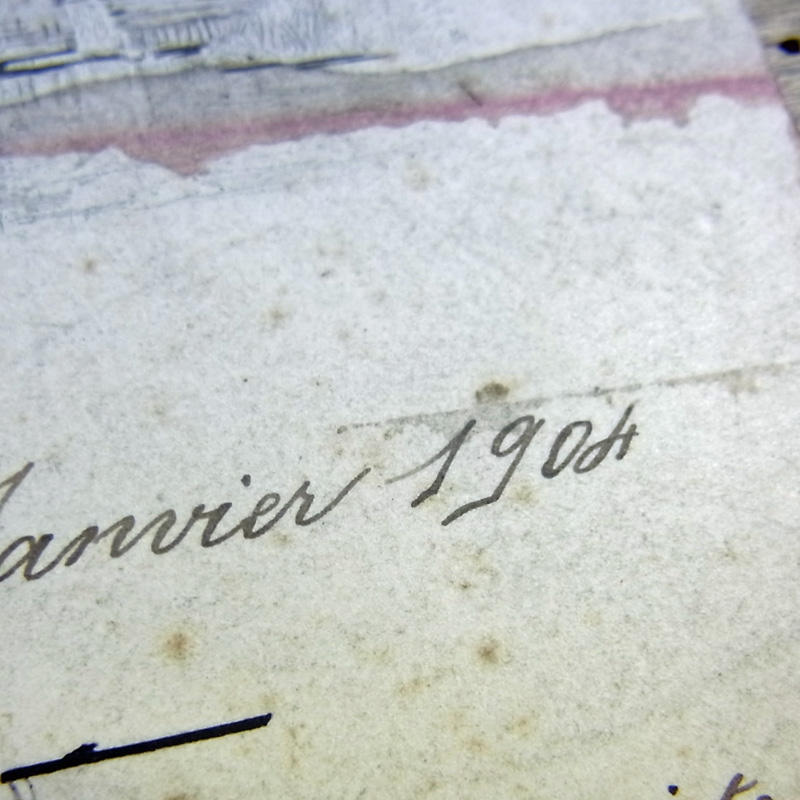 Janvier 1904